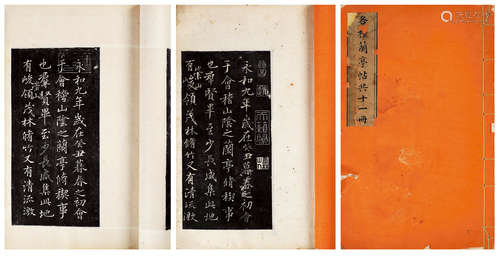 各種蘭亭帖共十一冊
永和九年歲在癸丑暮春之初會
于會稽山陰之蘭亭脩稧事
也羣賢畢至少長咸集此地
有崇山峻領茂林脩竹又有清流激
永和九年歲在癸丑暮春之初會
于會稽山陰之蘭亭脩稧事
也羣賢畢至少長咸集此地
有峻領茂林脩竹又有清流激